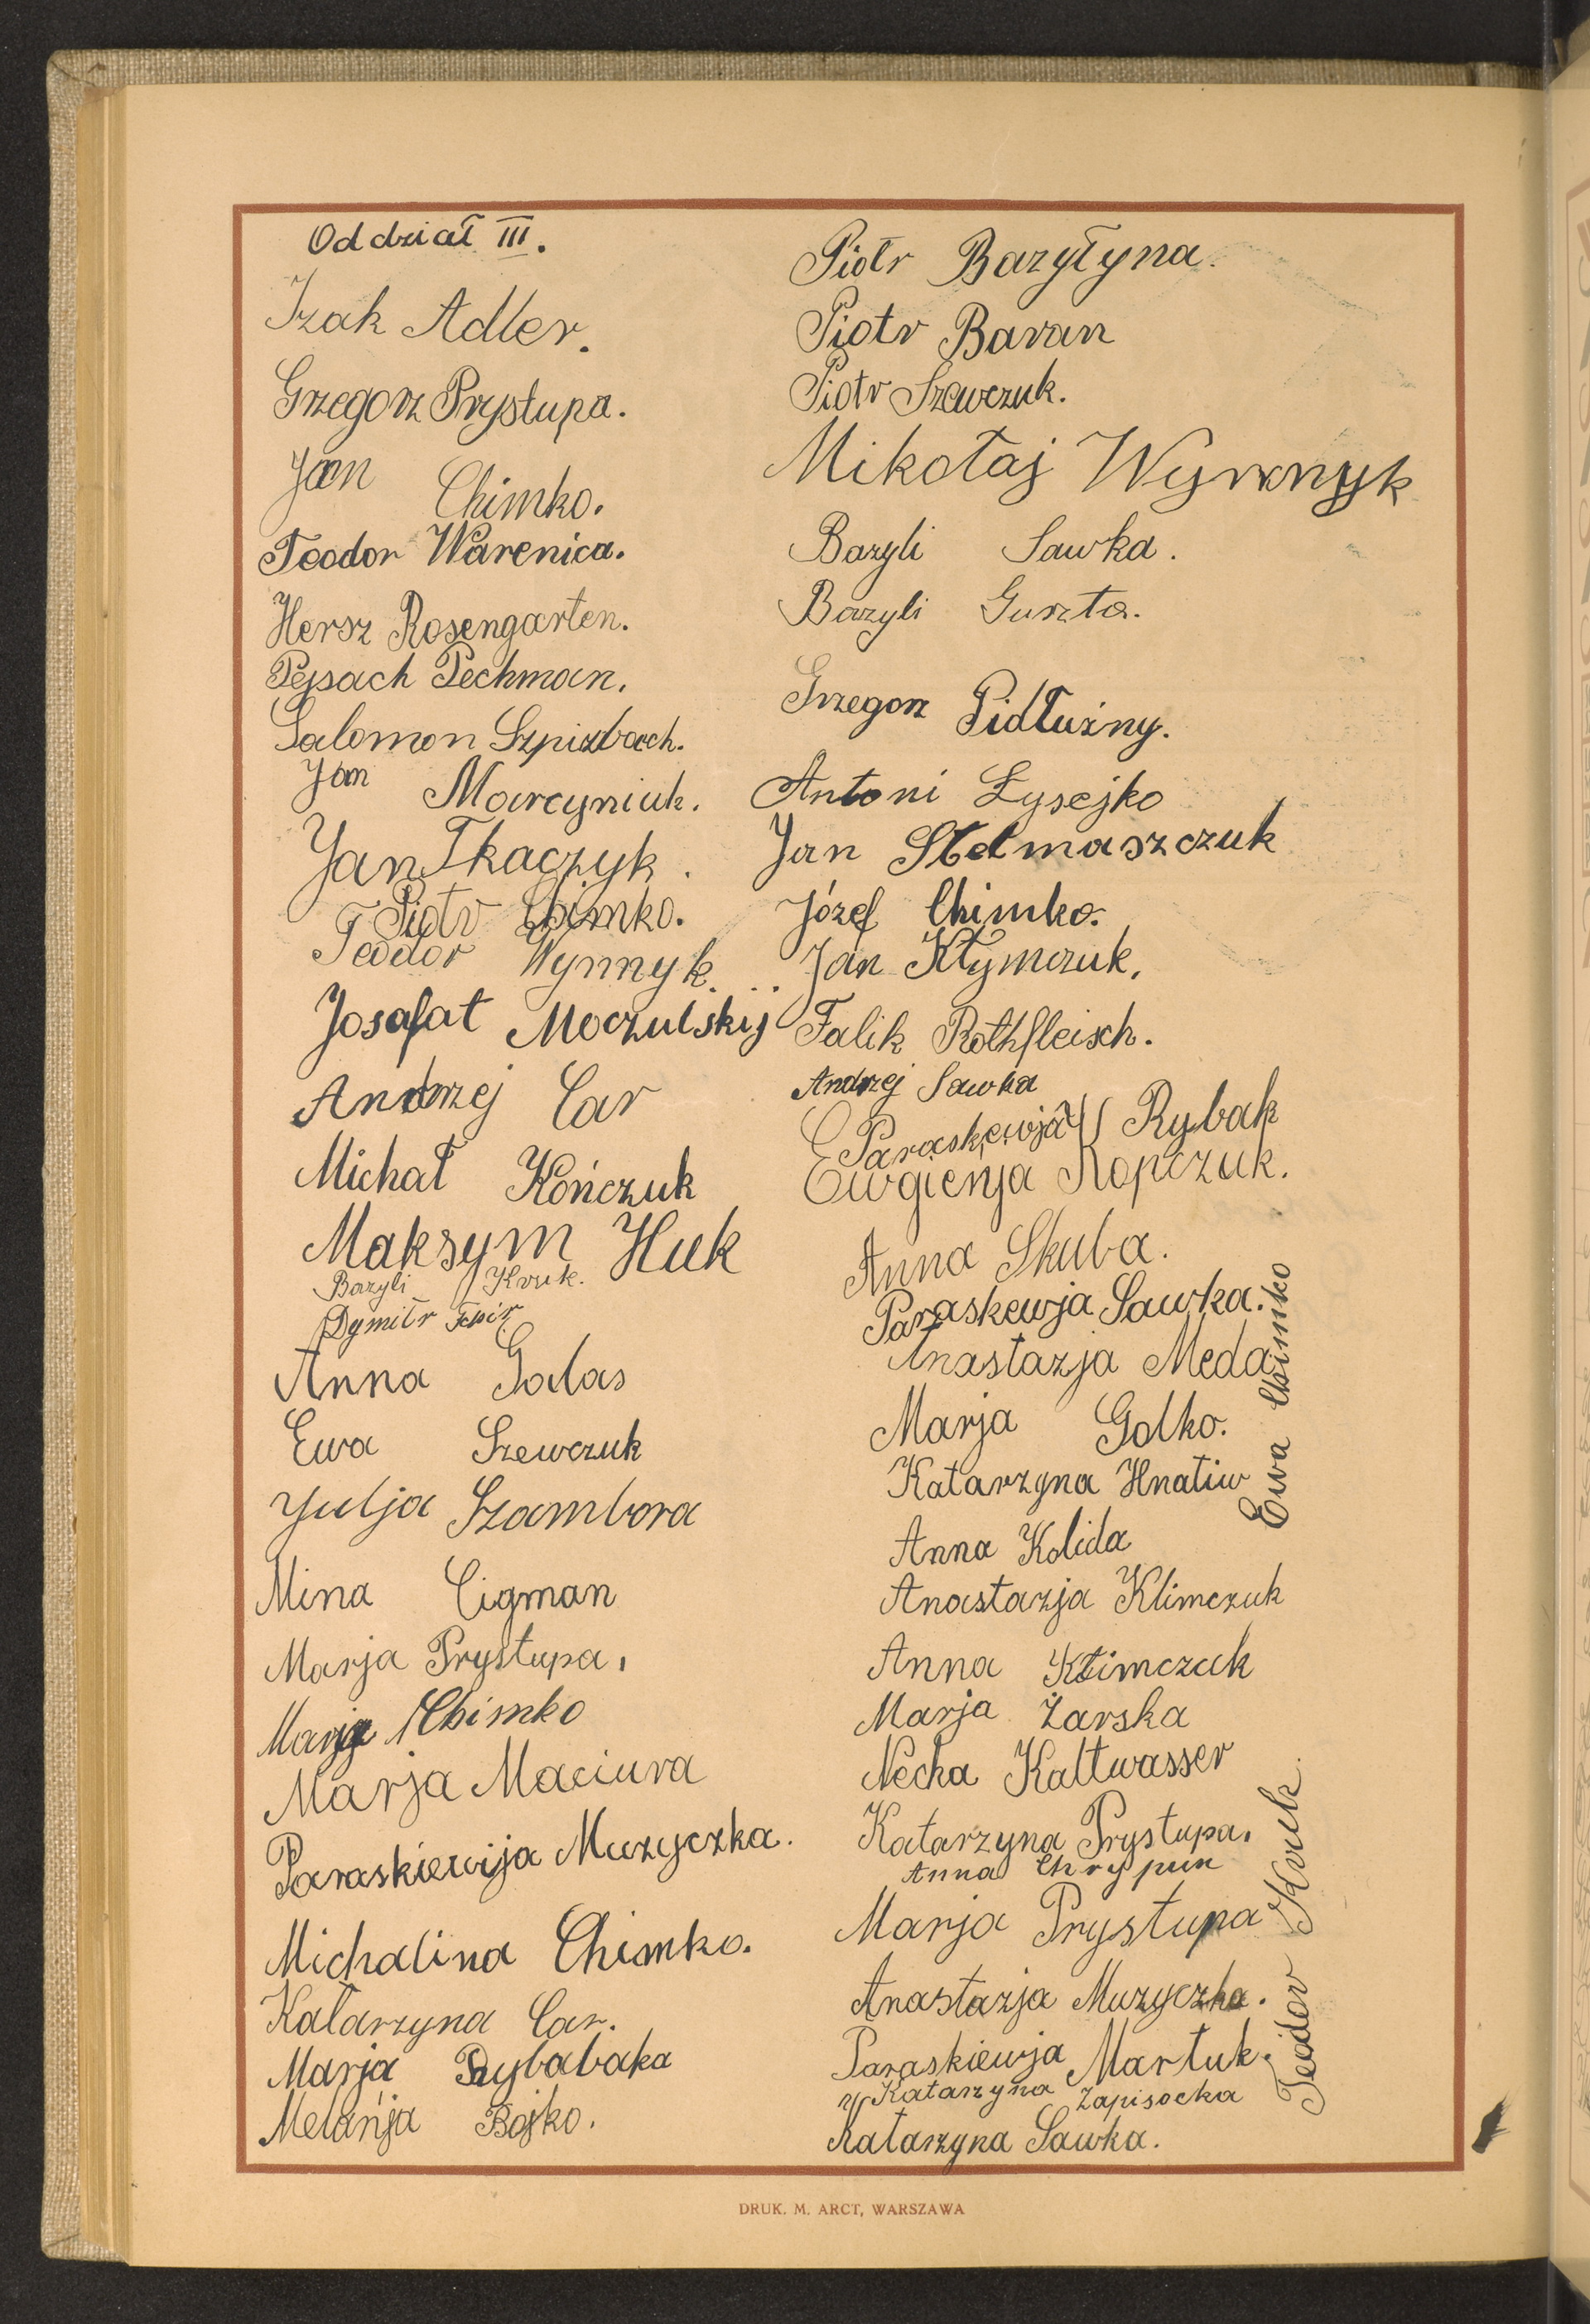 Oddział III.
Izak Adler.
Grzegorz Prystupa.
Jan Chimko.
Teodor Warenica.
Hersz Rosengarten.
Pejsach Pechman.
Salomon Szpizbach.
Jan Marcyniuk.
Jan Tkaczyk.
Piotr Chimko.
Teodor Wynnyk.
Josafat Moczulskij
Andrzej Car
Michał Kończuk
Maksym Huk
Bazyli Kruk.
Dymitr
Anna Galas
Ewa Szewczuk
Julja Szambora
Mina Cigman
Marja Prystupa.
Marja Chimko
Marja Maciura
Paraskiewija Muzyczka.
Michalina Chimko.
Katarzyna Car.
Marja Rybabaka
Melańja Bojko.
Piotr Bazyłyna.
Piotr Baran
Piotr Szewczuk.
Mikołaj
Bazyli Sawka.
Bazyli Guszta.
Grzegorz Pidłużny.
Antoni Łysejko
Jan Stelmaszczuk
Józef Chimko.
Jan Kłymczuk.
Falik Rothfleisch.
Andrzej Sawka
Paraskiewja Rybak
Ewgienja Kopczuk.
Anna Skuba.
Paraskewja Sawka.
Anastazja Meda
Marja Golko.
Katarzyna Hnatiw
Ewa Chimko
Anna Kolida
Anastazja Klimczuk
Anna Klimczuk
Marja Żarska
Necha Kaltwasser
Katarzyna Prystupa.
Anna Chrypun
Marja Prystupa
Anastazja Muzyczka.
Paraskiewja Martuk.
Katarzyna Zapisocka
Katarzyna Sawka.
Teodor Kruk.
DRUK. M. ARCT, WARSZAWA